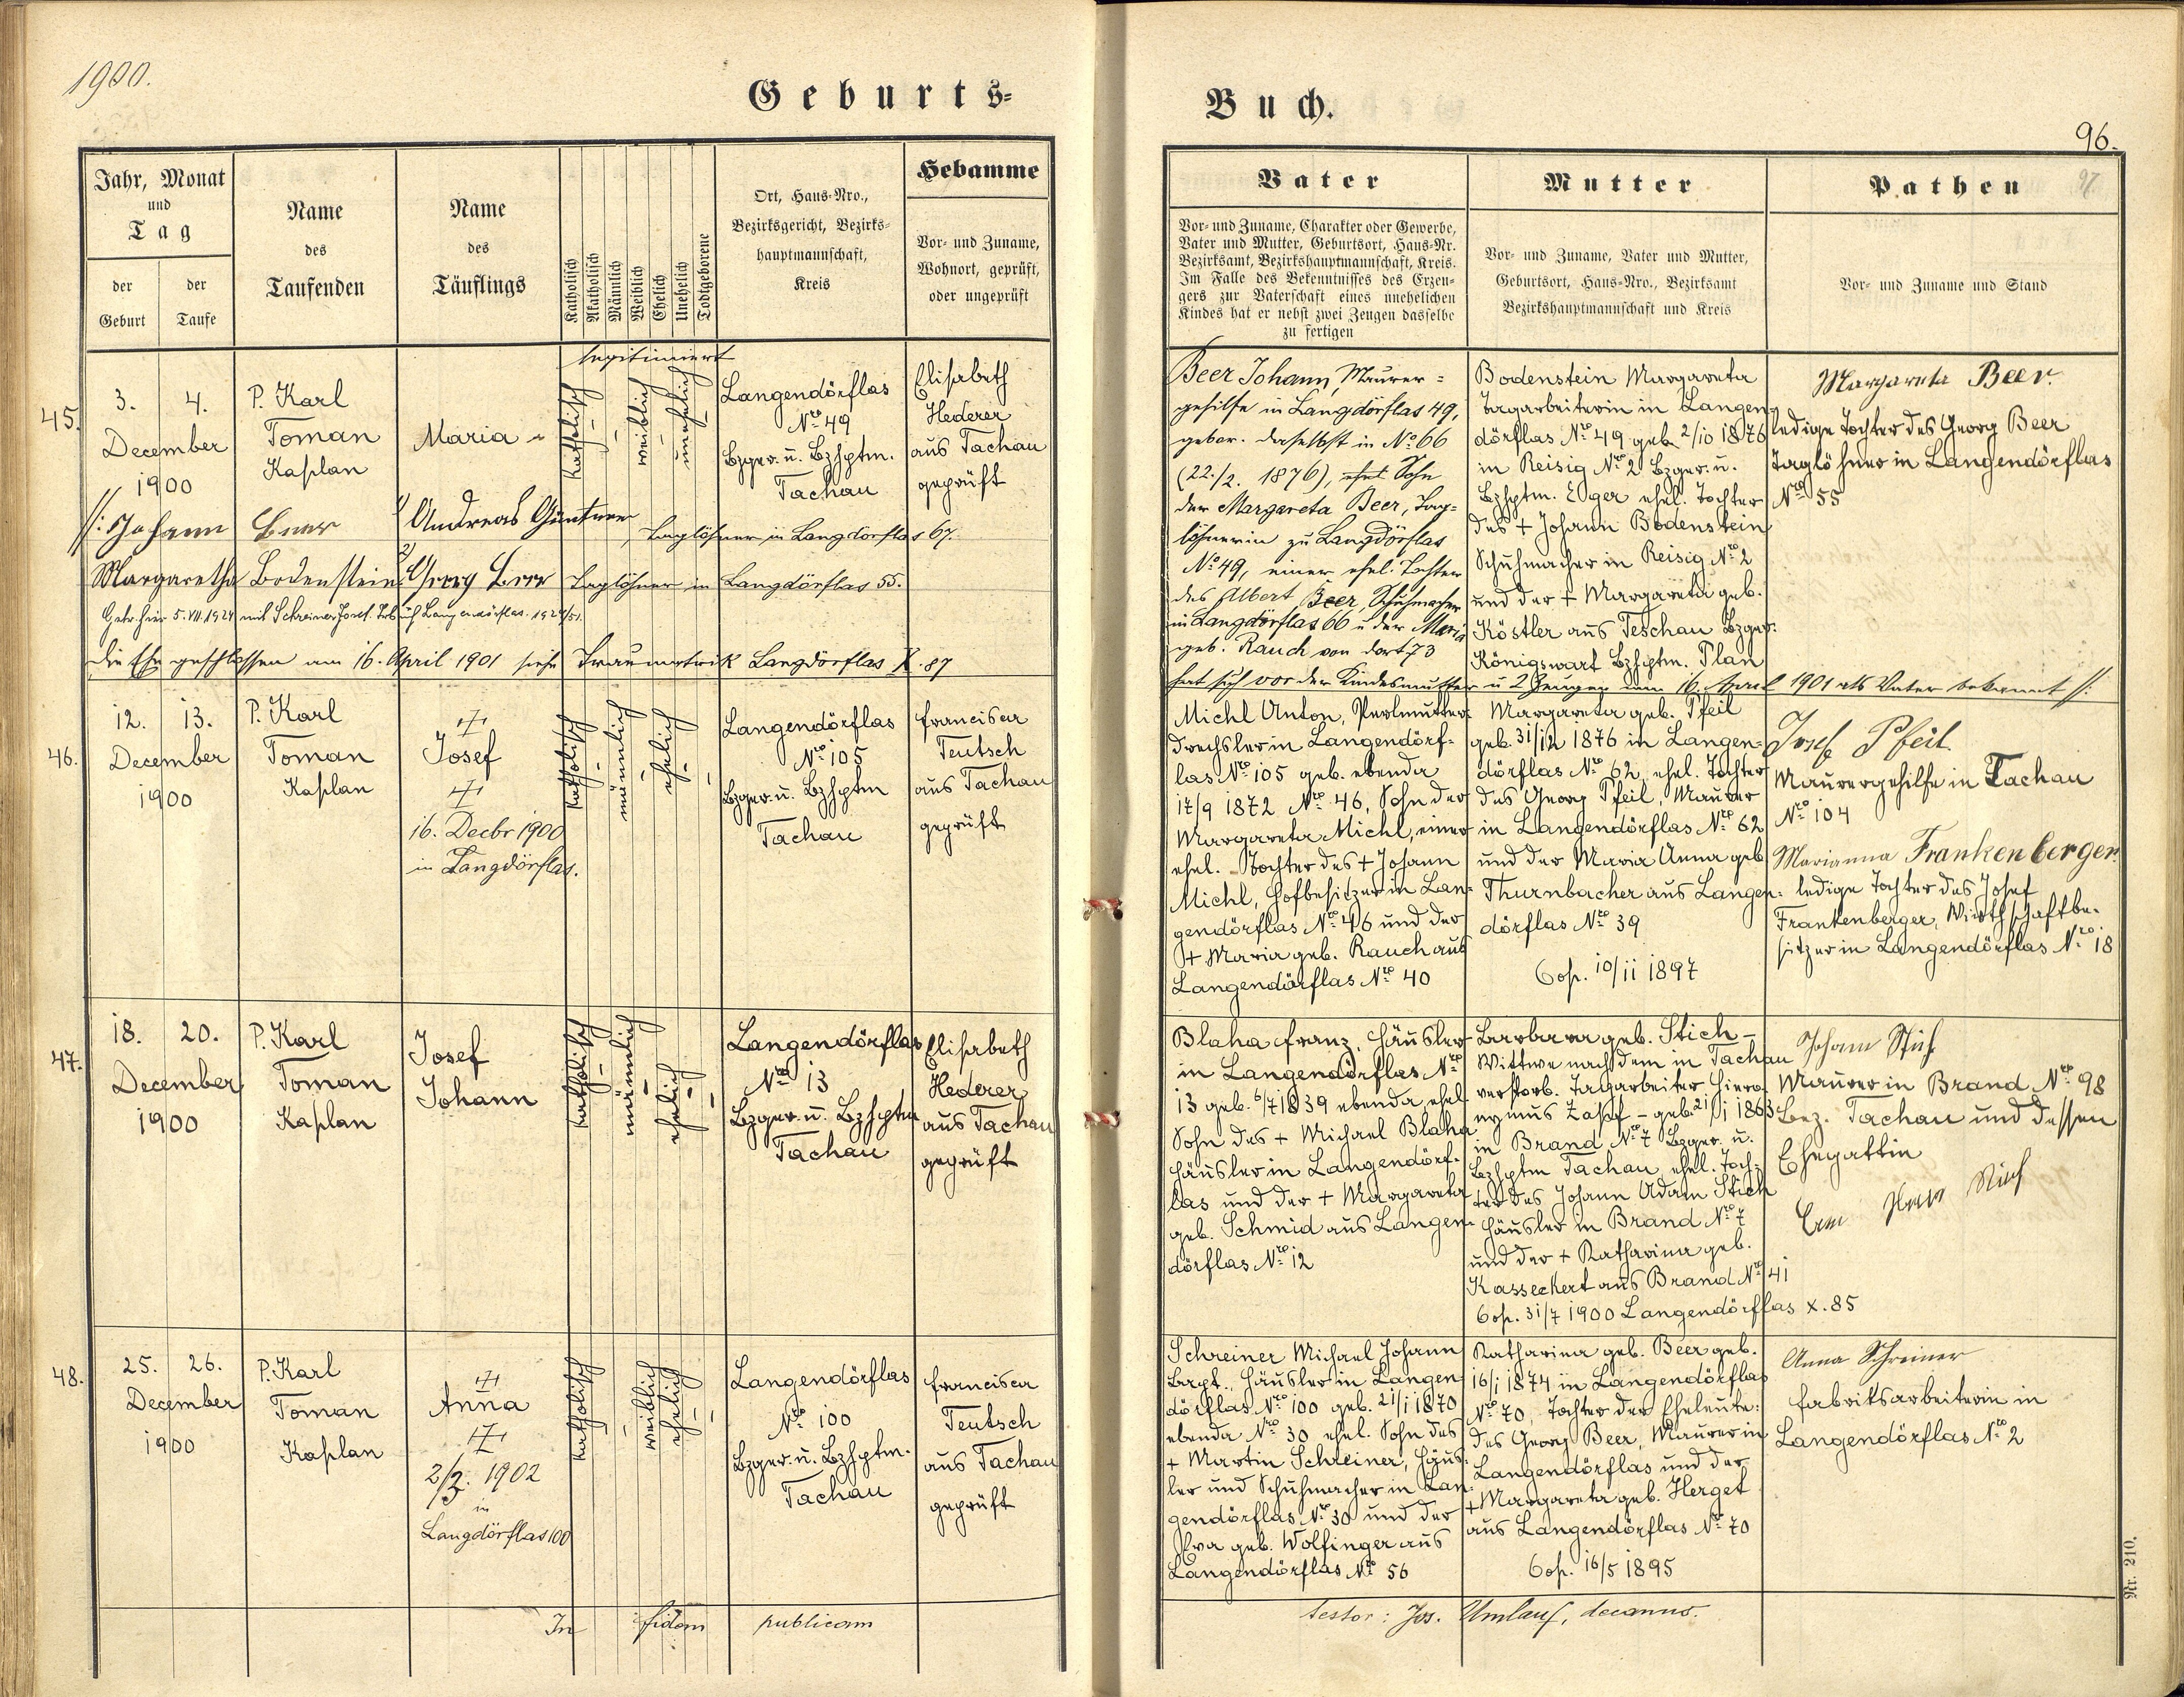 1900.
Geburts-
Buch.
96.
97
Jahr, Monat
und
Tag
der
Geburt
der
Taufe
Name
des
Taufenden
Name
des
Täuflings
Katholisch
Akatholisch
Männlich
Weiblich
Ehelich
Unehelich
Todtgeborene
Ort, Haus-Nro.,
Bezirksgericht, Bezirks-
hauptmannschaft,
Kreis
Hebamme
Vor- und Zuname,
Wohnort, geprüft,
oder ungeprüft
Vater
Vor- und Zuname, Charakter oder Gewerbe,
Vater und Mutter, Geburtsort, Haus-Nr.
Bezirksamt, Bezirkshauptmannschaft, Kreis.
Im Falle des Bekenntnisses des Erzeu-
gers zur Vaterschaft eines unehelichen
Kindes hat er nebst zwei Zeugen dasselbe
zu fertigen
Mutter
Vor- und Zuname, Vater und Mutter,
Geburtsort, Haus-Nro., Bezirksamt
Bezirkshauptmannschaft und Kreis
Pathen
Vor- und Zuname und Stand
45.
3. 4.
December
1900
P. Karl
Toman
Kaplan
Maria
legitimiert
katholisch
weiblich
unehelich
Langendörflas
Nro 49
Bzger. u. Bzhptm.
Tachau
Elisabeth
Hederer
aus Tachau
geprüft
/: Johann Beer
1) Andreas Güntner, Taglöhner in Langdörflas 67.
Margaretha Bodenstein
2) Georg Beer Taglöhner in Langdörflas 55.
Getr. hier 5.VII.1924 mit Schreiner Josef. Langendörflas. 1924/51.
die Ehe geschlossen am 16. April 1901 siehe Traumatrik Langdörflas X. 87
Beer Johann, Maurer=
gehilfe in Langdörflas 49,
gebor. daselbst in No 66
(22./2. 1876), Sohn
der Margareta Beer, Tag=
löhnerin zu Langdörflas
No 49, einer ehel. Tochter
des Albert Beer, Schuhmacher
in Langdörflas 66 u der Maria
geb. Rauch von dort 73
hat sich vor der Kindesmutter u 2 Zeugen am 16. April 1901 als Vater bekannt /:
Bodenstein Margareta
Tagarbeiterin in Langen=
dörflas Nro 49 geb. 2/10 1876
in Reisig Nro 2 Bzger. u.
Bzhptm. Eger ehel. Tochter
des + Johann Bodenstein
Schuhmacher in Reisig Nro 2
und der + Margareta geb.
Köstler aus Teschau Bzger.
Königswart Bzhptm. Plan
Margareta Beer.
ledige Tochter des Georg Beer
Taglöhner in Langendörflas
Nro 55
46.
12. 13.
December
1900
P. Karl
Toman
Kaplan
Josef
16. Decbr 1900
in Langdörflas.
katholisch
männlich
ehelich
Langendörflas
Nro 105
Bzger. u. Bzhptm
Tachau
Francisca
Teutsch
aus Tachau
geprüft
Michl Anton, Perlmutter=
drechsler in Langendörf=
las Nro 105 geb. ebenda
17/9 1872 Nro 46, Sohn der
Margareta Michl, einer
ehel. Tochter des + Johann
Michl, Hofbesitzer in Lan=
gendörflas Nro 46 und der
+ Maria geb. Rauch aus
Langendörflas Nro 40
Margareta geb. Pfeil
geb. 31/12 1876 in Langen=
dörflas Nro 62, ehel. Tochter
des Georg Pfeil, Maurer
in Langendörflas Nro 62
und der Maria Anna geb
Thurnbacher aus Langen=
dörflas Nro 39
Cop. 10/11 1897
Josef Pfeil
Maurergehilfe in Tachau
Nro 104
Marianna Frankenberger
ledige Tochter des Josef
Frankenberger, Wirthschaftbe=
sitzer in Langendörflas Nro 18
47.
18. 20.
December
1900
P. Karl
Toman
Kaplan
Josef
Johann
katholisch
männlich
ehelich
Langendörflas
Nro 13
Bzger. u. Bzhptm
Tachau
Elisabeth
Hederer
aus Tachau
geprüft
Blaha Franz, Häusler
in Langendörflas Nro
13 geb. 6/7 1839 ebenda, ehel
Sohn des + Michael Blaha
Häusler in Langendörf=
las und der + Margareta
geb. Schmid aus Langen=
dörflas Nro 12
Barbara geb. Stich –
Wittwe nach dem in Tachau
verstorb. Tagarbeiter Hiero=
nymus – geb. 21/1 1863
in Brand Nro 7 Bzger. u.
Bzhptm Tachau, ehel. Toch=
ter des Johann Adam Stich
Häusler in Brand Nro 7
und der + Katharina geb.
Kasseckert aus Brand Nro 41
Cop. 31/7 1900 Langendörflas X. 85
Johann Stich
Maurer in Brand Nro 98
Bez. Tachau und dessen
Ehegattin
Stich
48.
25. 26.
December
1900
P. Karl
Toman
Kaplan
Anna
2/3. 1902
in
Langdörflas 100
katholisch
weiblich
ehelich
Langendörflas
Nro 100
Bzger. u. Bzhptm.
Tachau
Francisca
Teutsch
aus Tachau
geprüft
Schreiner Michael Johann
Bapt., Häusler in Langen=
dörflas Nro 100 geb. 21/1 1870
ebenda Nro 30 ehel. Sohn des
+ Martin Schreiner, Häus=
ler und Schuhmacher in Lan=
gendörflas Nro 30 und der
Eva geb. Wolfinger aus
Langendörflas Nro 56
Katharina geb. Beer geb.
16/1 1874 in Langendörflas
Nro 70, Tochter der Eheleute:
des Georg Beer, Maurer in
Langendörflas und der
+ Margareta geb. Herget
aus Langendörflas Nro 70
Cop. 16/5 1895
Anna Schreiner
Fabriksarbeiterin in
Langendörflas Nro 2
In fidem publicam
testor: Jos. Umlauf, decanus.
Nr. 210.